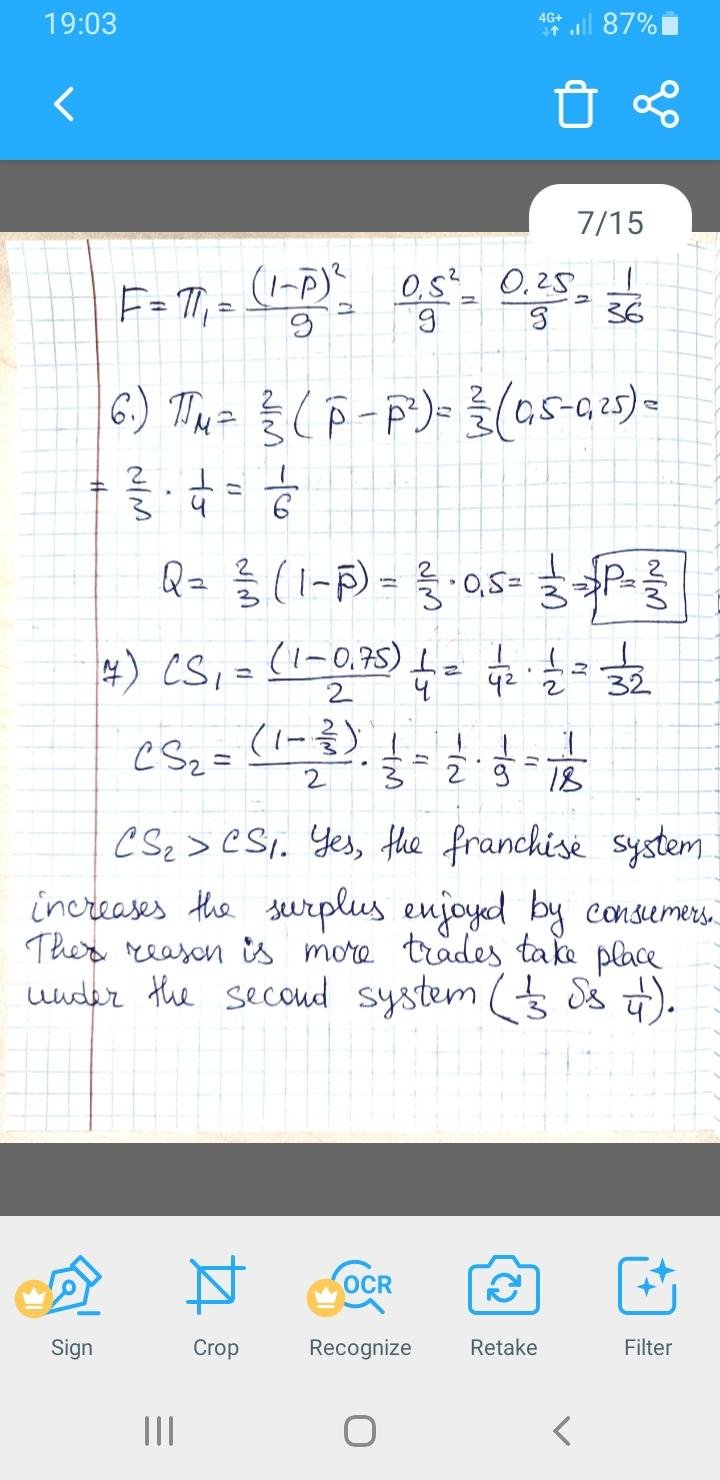 19:03 4G+ 87%
7/15
F = π₁ = (1-p̄)²/9 = 0,5²/9 = 0.25/9 = 1/36
6.) πM = 2/3 (p̄ - p̄²) = 2/3 (0,5-0,25) =
= 2/3 · 1/4 = 1/6
Q = 2/3 (1-p̄) = 2/3 · 0,5 = 1/3 => P = 2/3
7) CS₁ = (1-0.75)/2 1/4 = 1/4² · 1/2 = 1/32
CS₂ = (1-2/3)/2 · 1/3 = 1/2 · 1/9 = 1/18
CS₂ > CS₁. Yes, the franchise system
increases the surplus enjoyed by consumers.
reason is more trades take place
under the second system (1/3 1/4).
Sign Crop OCR Recognize Retake Filter